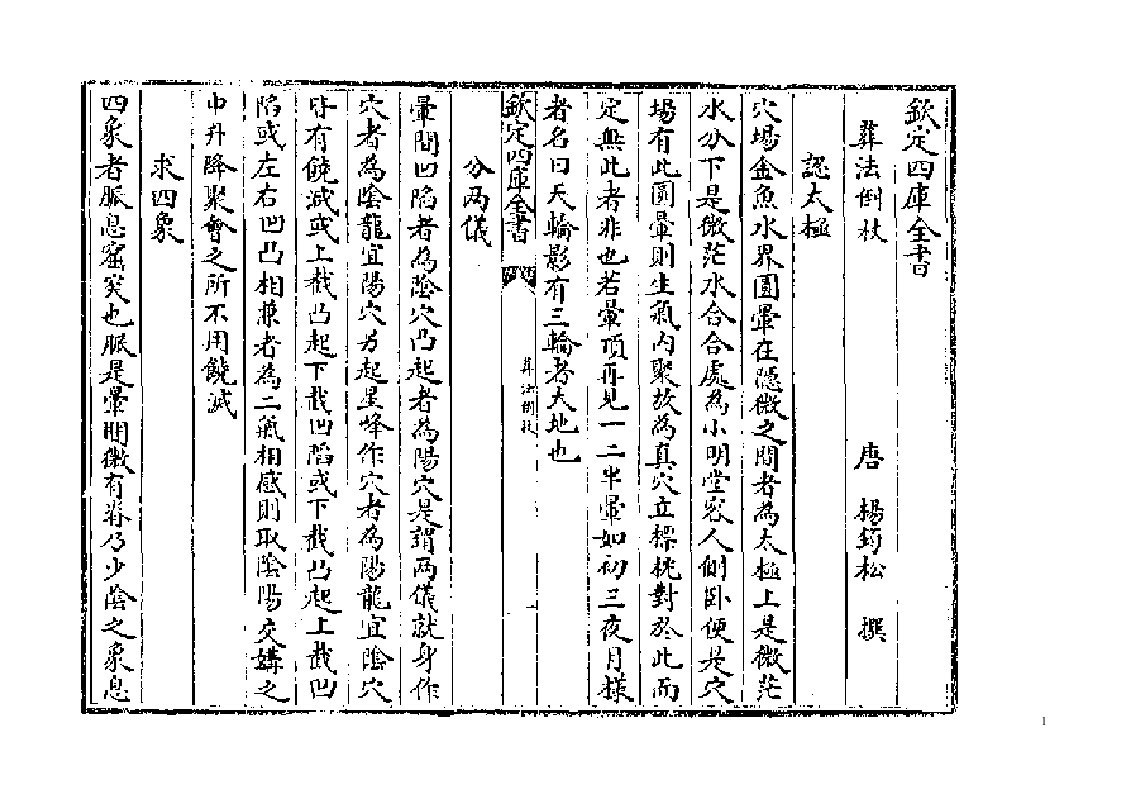 欽定四庫全書
葬法倒杖
唐 楊筠松 撰
認太極
穴場金魚水界圓暈在隱微之間者為太極上是微茫
水分下是微茫水合合處為小明堂容人側卧便是穴
場有此圓暈則生氣內聚故為真穴立標枕對於此而
定無此者非也若暈頂再見一二半暈如初三夜月樣
者名曰天輪影有三輪者大地也
欽定四庫全書
葬法倒杖
一
分兩儀
暈間凹陷者為陰穴凸起者為陽穴是謂兩儀就身作
穴者為陰龍宜陽穴另起星峰作穴者為陽龍宜陰穴
皆有饒減或上截凸起下截凹陷或下截凸起上截凹
陷或左右凹凸相兼者為二氣相感則取陰陽交媾之
中升降聚會之所不用饒減
求四象
四象者脈息窟突也脈是暈間微有脊乃少陰之象息
1